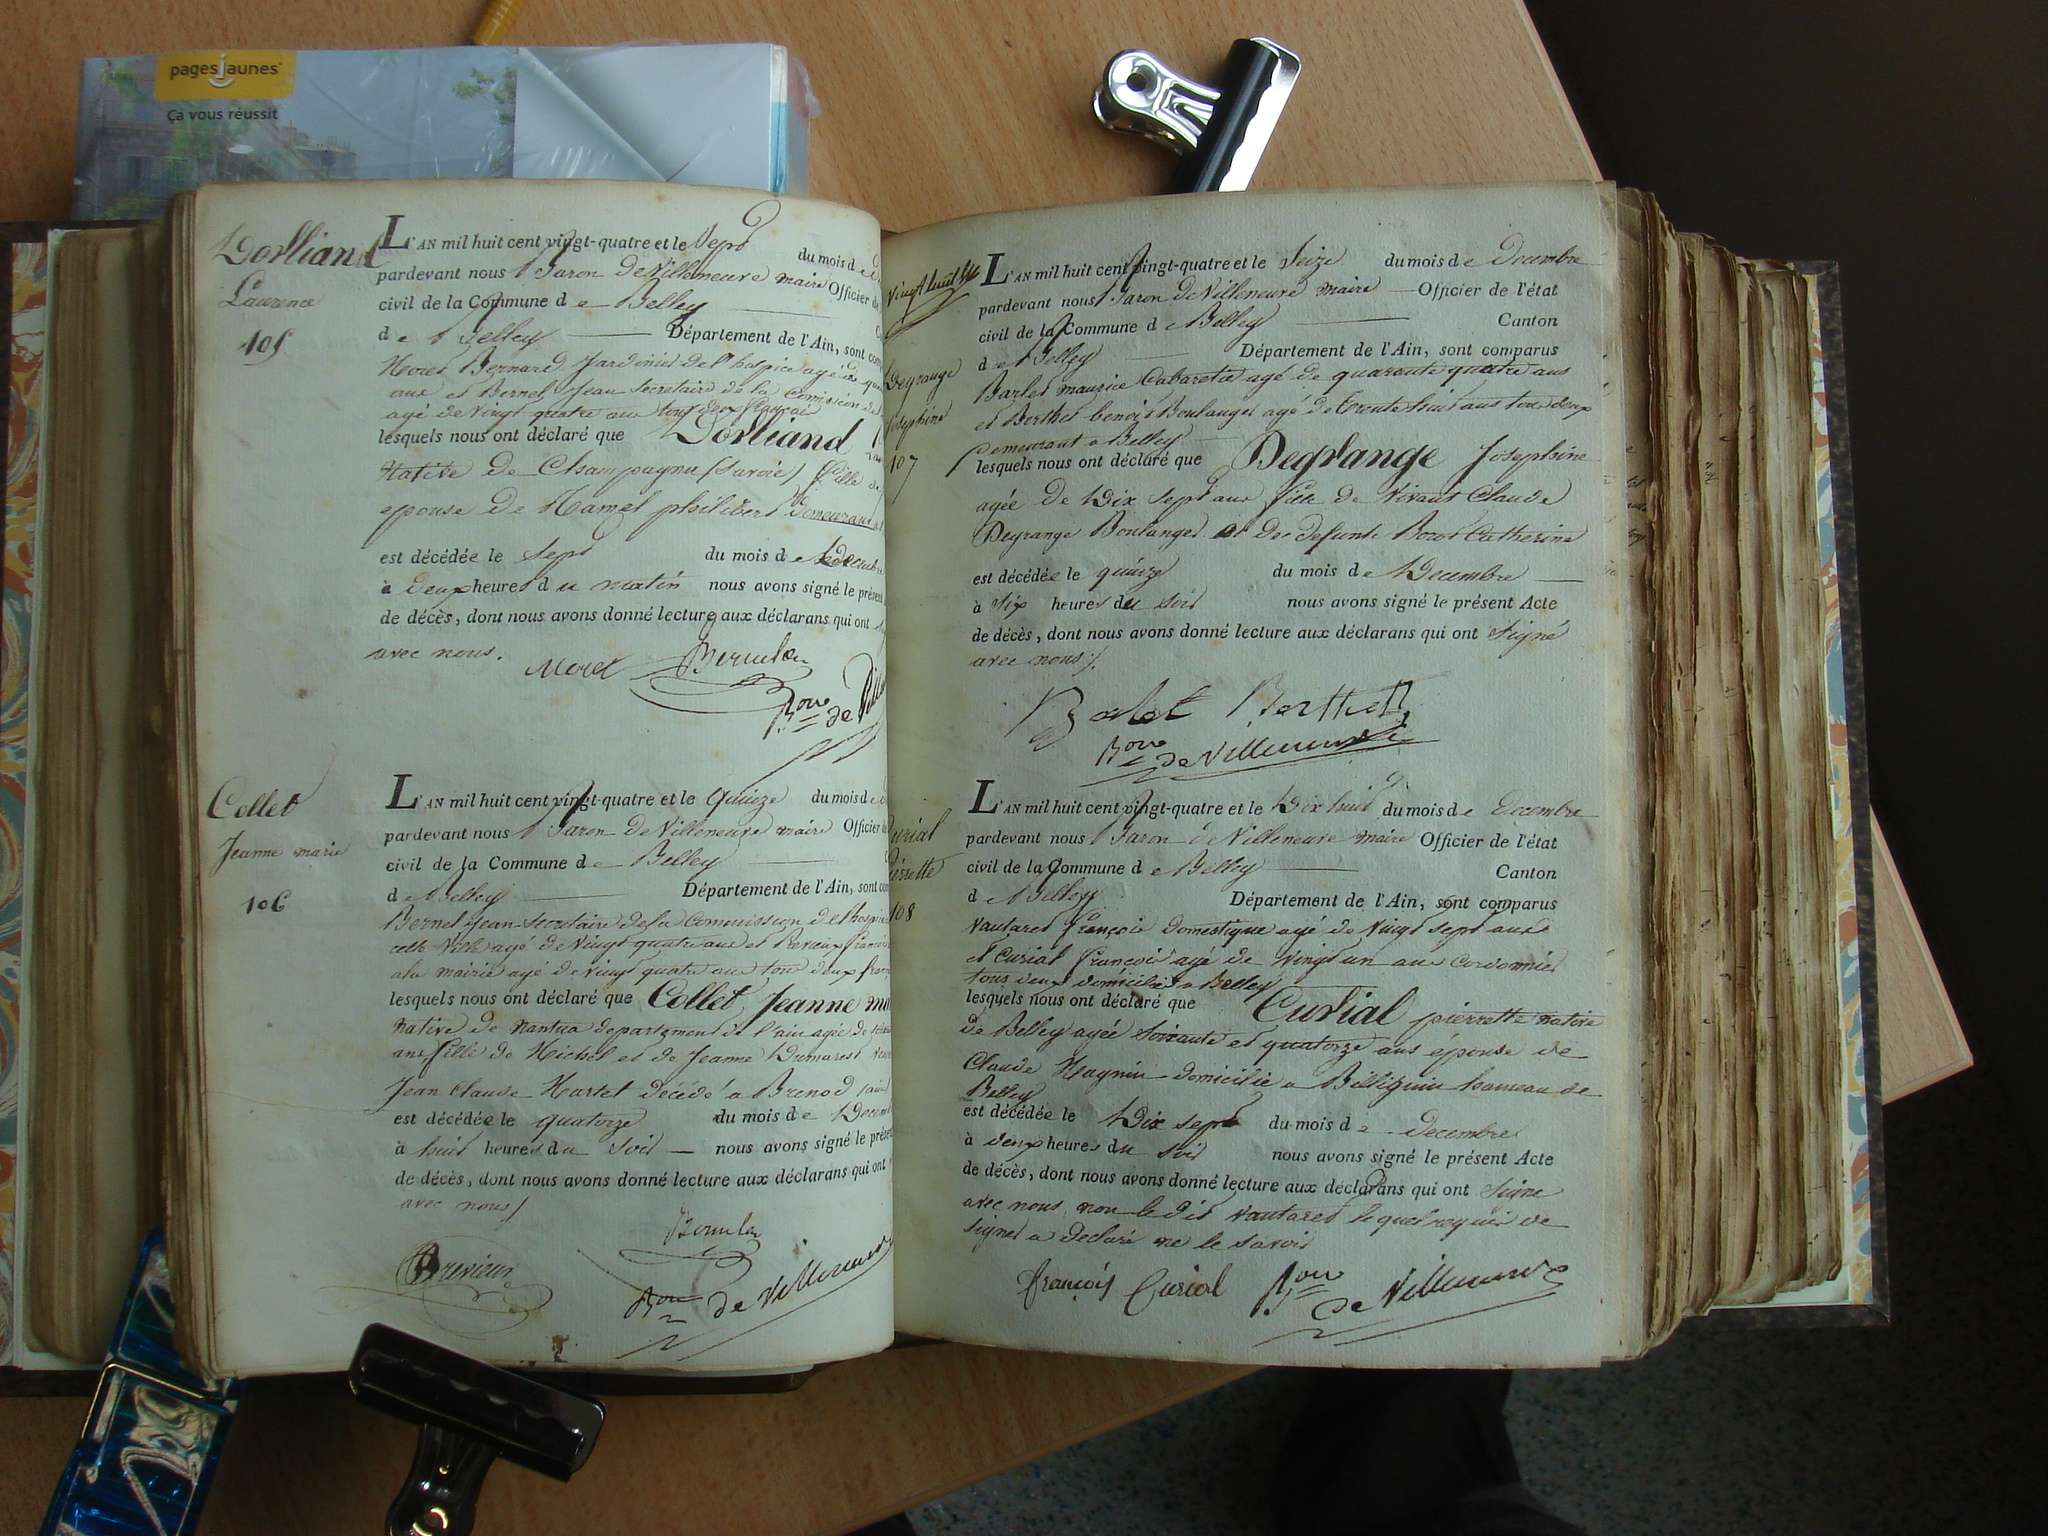 pagesjaunes
Ça vous réussit
Dorlliand
Laurence
105
L'AN mil huit cent vingt-quatre et le Sept du mois d
pardevant nous Baron DeVilleneuve maire Officier de
civil de la Commune d e Belley
d e Belley Département de l'Ain, sont com
Moret Bernard Jardinier de l'hospice agé de
ans et Bernel Jean Secretaire de la Comission de
agé de Vingt quatre ans tous deux français
lesquels nous ont déclaré que Dorlliand
Native de Champagneu (Savoie) fille de
epouse de Hamel philibert Demeurant
est décédée le Sept du mois d e Decembre
à deux heures d u matin nous avons signé le présent
de décès, dont nous avons donné lecture aux déclarans qui ont
avec nous.
Moret
Bon de Vill
Collet
Jeanne marie
106
L'AN mil huit cent vingt-quatre et le Quinze du mois d e
pardevant nous Baron DeVilleneuve maire Officier de
civil de la Commune d e Belley
d e Belley Département de l'Ain, sont com
Bernel Jean Secretaire de la Commission de l'hospice
cette Ville agé de Vingt quatre ans et Brevieux francois
a la mairie agé de Vingt quatre ans tous deux fran
lesquels nous ont déclaré que Collet, Jeanne mar
Native de Nantua departement de l'ain agée de
ans fille de Michel et de Jeanne Dumarest
Jean Claude Martel décédé a Brenod
est décédée le quatorze du mois d e Decem
à huit heures d u Soir nous avons signé le prése
de décès, dont nous avons donné lecture aux déclarans qui ont
avec nous
Brevieux
Bon de Villeneuve
Vingt huit
Degrange
Josephine
107
L'AN mil huit cent vingt-quatre et le Seize du mois d e Decembre
pardevant nous Baron DeVilleneuve maire Officier de l'état
civil de la Commune d e Belley Canton
d e Belley Département de l'Ain, sont comparus
Barlet maurice Cabaretier agé de quarante quatre ans
et Berthet benoit Boulanger agé de trente huit ans tous deux
Demeurant a Belley
lesquels nous ont déclaré que Degrange Josephine
agée de Dix sept ans fille de Vivant Claude
Degrange Boulanger et de defunte Catherine
est décédée le quinze du mois d e Decembre
à Six heures du soir nous avons signé le présent Acte
de décès, dont nous avons donné lecture aux déclarans qui ont signé
avec nous
Barlet Berthet
Bon de Villeneuve
urial
ierrette
108
L'AN mil huit cent vingt-quatre et le Dix huit du mois d e Decembre
pardevant nous Baron de Villeneuve maire Officier de l'état
civil de la Commune d e Belley Canton
d e Belley Département de l'Ain, sont comparus
Vautaret françois Domestique agé de Vingt sept ans
et Curial françois agé de Vingt un ans Cordonnier
tous deux domiciliés a Belley
lesquels nous ont déclaré que Curial pierrette native
de Belley agée Soixante et quatorze ans épouse de
Claude Magnin domicilié a Billignin hameau de
Belley
est décédée le Dix sept du mois d e decembre
à deux heures du Soir nous avons signé le présent Acte
de décès, dont nous avons donné lecture aux déclarans qui ont Signé
avec nous, non le dit Vautaret lequel requis de
signer a declaré ne le savoir
françois Curial Bon de Villeneuve